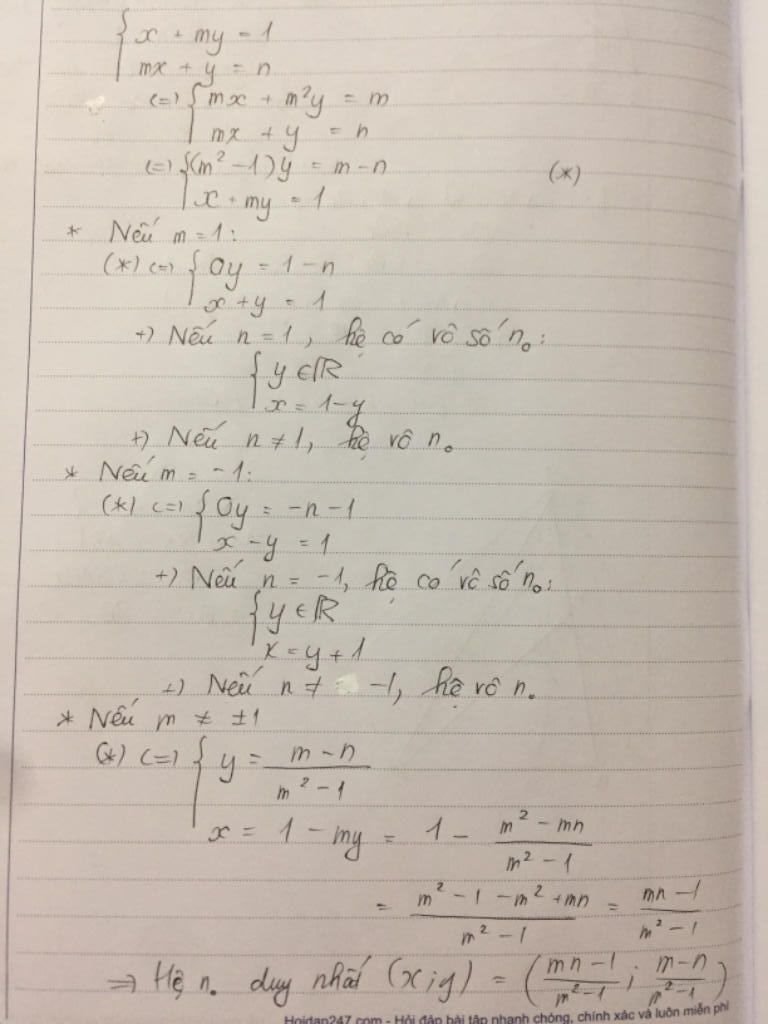 { x + my = 1
mx + y = n
(=) { mx + m²y = m
mx + y = n
(=) { (m² - 1)y = m - n (*)
x + my = 1
* Nếu m = 1:
(*) (=) { 0y = 1 - n
x + y = 1
+) Nếu n = 1, hệ có vô số n₀:
{ y ∈ ℝ
x = 1 - y
+) Nếu n ≠ 1, hệ vô n₀
* Nếu m = -1:
(*) (=) { 0y = -n - 1
x - y = 1
+) Nếu n = -1, hệ có vô số n₀:
{ y ∈ ℝ
x = y + 1
+) Nếu n ≠ -1, hệ vô n₀
* Nếu m ≠ ±1
(*) (=) { y = (m - n)/(m² - 1)
x = 1 - my = 1 - (m² - mn)/(m² - 1)
= (m² - 1 - m² + mn)/(m² - 1) = (mn - 1)/(m² - 1)
=> Hệ n₀ duy nhất (x;y) = ((mn - 1)/(m² - 1); (m - n)/(m² - 1))
Hoidap247.com - Hỏi đáp bài tập nhanh chóng, chính xác và luôn miễn phí